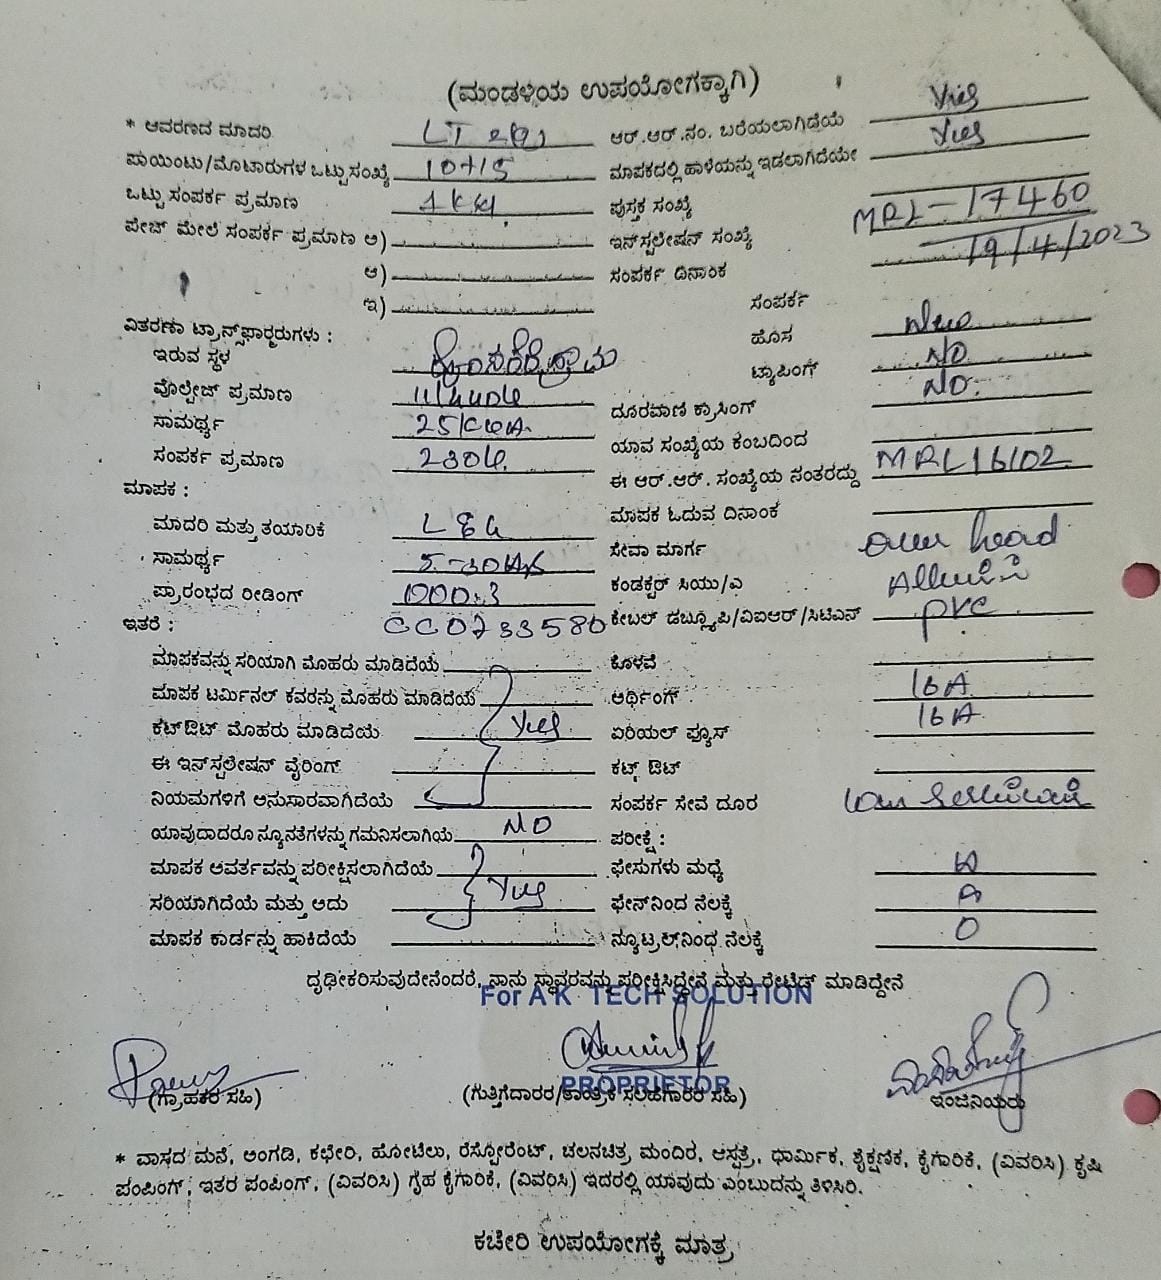 (ಮಂಡಳಿಯ ಉಪಯೋಗಕ್ಕಾಗಿ)
* ಆವರಣದ ಮಾದರಿ LT ಆರ್.ಆರ್.ನಂ. ಬರೆಯಲಾಗಿದೆಯೆ Yies
ಪಾಯಿಂಟು/ಮೋಟಾರುಗಳ ಒಟ್ಟು ಸಂಖ್ಯೆ 10+15 ಮಾಪಕದಲ್ಲಿ ಹಾಳೆಯನ್ನು ಇಡಲಾಗಿದೆಯೇ Yies
ಒಟ್ಟು ಸಂಪರ್ಕ ಪ್ರಮಾಣ 1KW. ಪುಸ್ತಕ ಸಂಖ್ಯೆ
ಪೇಟ್ ಮೇಲೆ ಸಂಪರ್ಕ ಪ್ರಮಾಣ ಅ) ಇನ್‌ಸ್ಟಲೇಷನ್ ಸಂಖ್ಯೆ MRL-17460
ಆ) ಸಂಪರ್ಕ ದಿನಾಂಕ 19/4/2023
ಇ) ಸಂಪರ್ಕ
ವಿತರಣಾ ಟ್ರಾನ್ಸ್‌ಫಾರ್‍ಮರುಗಳು : ಹೊಸ New
ಇರುವ ಸ್ಥಳ ಟ್ಯಾಪಿಂಗ್ NO
ವೊಲ್ಟೇಜ್ ಪ್ರಮಾಣ 11/440V ದೂರವಾಣಿ ಕ್ರಾಸಿಂಗ್ NO.
ಸಾಮರ್ಥ್ಯ 25KVA. ಯಾವ ಸಂಖ್ಯೆಯ ಕಂಬದಿಂದ
ಸಂಪರ್ಕ ಪ್ರಮಾಣ 230V. ಈ ಆರ್.ಆರ್. ಸಂಖ್ಯೆಯ ನಂತರದ್ದು MRL16102
ಮಾಪಕ :
ಮಾದರಿ ಮತ್ತು ತಯಾರಿಕೆ L&G ಮಾಪಕ ಓದುವ ದಿನಾಂಕ
ಸಾಮರ್ಥ್ಯ ಸೇವಾ ಮಾರ್ಗ over head
ಪ್ರಾರಂಭದ ರೀಡಿಂಗ್ 000.3 ಕಂಡಕ್ಟರ್ ಸಿಯು/ಎ
ಇತರೆ : CC0733580 ಕೇಬಲ್ ಡಬ್ಲ್ಯೂಪಿ/ವಿಐಆರ್/ಸಿಟಿಎಸ್ PVC
ಮಾಪಕವನ್ನು ಸರಿಯಾಗಿ ಮೊಹರು ಮಾಡಿದೆಯೆ ಕೊಳವೆ
ಮಾಪಕ ಟರ್ಮಿನಲ್ ಕವರನ್ನು ಮೊಹರು ಮಾಡಿದೆಯೆ ಅರ್ಥಿಂಗ್ 16A
ಕಟ್‌ಔಟ್ ಮೊಹರು ಮಾಡಿದೆಯೆ Yies ಏರಿಯಲ್ ಫ್ಯೂಸ್ 16A
ಈ ಇನ್‌ಸ್ಟಲೇಷನ್ ವೈರಿಂಗ್ ಕಟ್ಟ್ ಔಟ್
ನಿಯಮಗಳಿಗೆ ಅನುಸಾರವಾಗಿದೆಯೆ ಸಂಪರ್ಕ ಸೇವೆ ದೂರ
ಯಾವುದಾದರೂ ನ್ಯೂನತೆಗಳನ್ನು ಗಮನಿಸಲಾಗಿಯೆ NO ಪರೀಕ್ಷೆ :
ಮಾಪಕ ಆವರ್ತವನ್ನು ಪರೀಕ್ಷಿಸಲಾಗಿದೆಯೆ ಫೇಸುಗಳು ಮಧ್ಯೆ
ಸರಿಯಾಗಿದೆಯೆ ಮತ್ತು ಅದು Yies ಫೇಸ್‌ನಿಂದ ನೆಲಕ್ಕೆ
ಮಾಪಕ ಕಾರ್ಡನ್ನು ಹಾಕಿದೆಯೆ ನ್ಯೂಟ್ರಲ್‌ನಿಂಧ ನೆಲಕ್ಕೆ 0
ದೃಢೀಕರಿಸುವುದೇನೆಂದರೆ, ನಾನು ಸ್ಥಾವರವನ್ನು ಪರೀಕ್ಷಿಸಿದ್ದೇನೆ ಮತ್ತು ರೇಟೆಡ್ ಮಾಡಿದ್ದೇನೆ
For A K TECH SOLUTION
PROPRIETOR
(ಗ್ರಾಹಕರ ಸಹಿ) (ಗುತ್ತಿಗೆದಾರರ/ತಾಂತ್ರಿಕ ಸಲಹಗಾರರ ಸಹಿ) ಇಂಜಿನಿಯರು
* ವಾಸದ ಮನೆ, ಅಂಗಡಿ, ಕಛೇರಿ, ಹೋಟೆಲು, ರೆಸ್ಟೋರೆಂಟ್, ಚಲನಚಿತ್ರ ಮಂದಿರ, ಆಸ್ಪತ್ರೆ, ಧಾರ್ಮಿಕ, ಶೈಕ್ಷಣಿಕ, ಕೈಗಾರಿಕೆ, (ವಿವರಿಸಿ) ಕೃಷಿ
ಪಂಪಿಂಗ್, ಇತರ ಪಂಪಿಂಗ್, (ವಿವರಿಸಿ) ಗೃಹ ಕೈಗಾರಿಕೆ, (ವಿವರಿಸಿ) ಇದರಲ್ಲಿ ಯಾವುದು ಎಂಬುದನ್ನು ತಿಳಿಸಿರಿ.
ಕಚೇರಿ ಉಪಯೋಗಕ್ಕೆ ಮಾತ್ರ